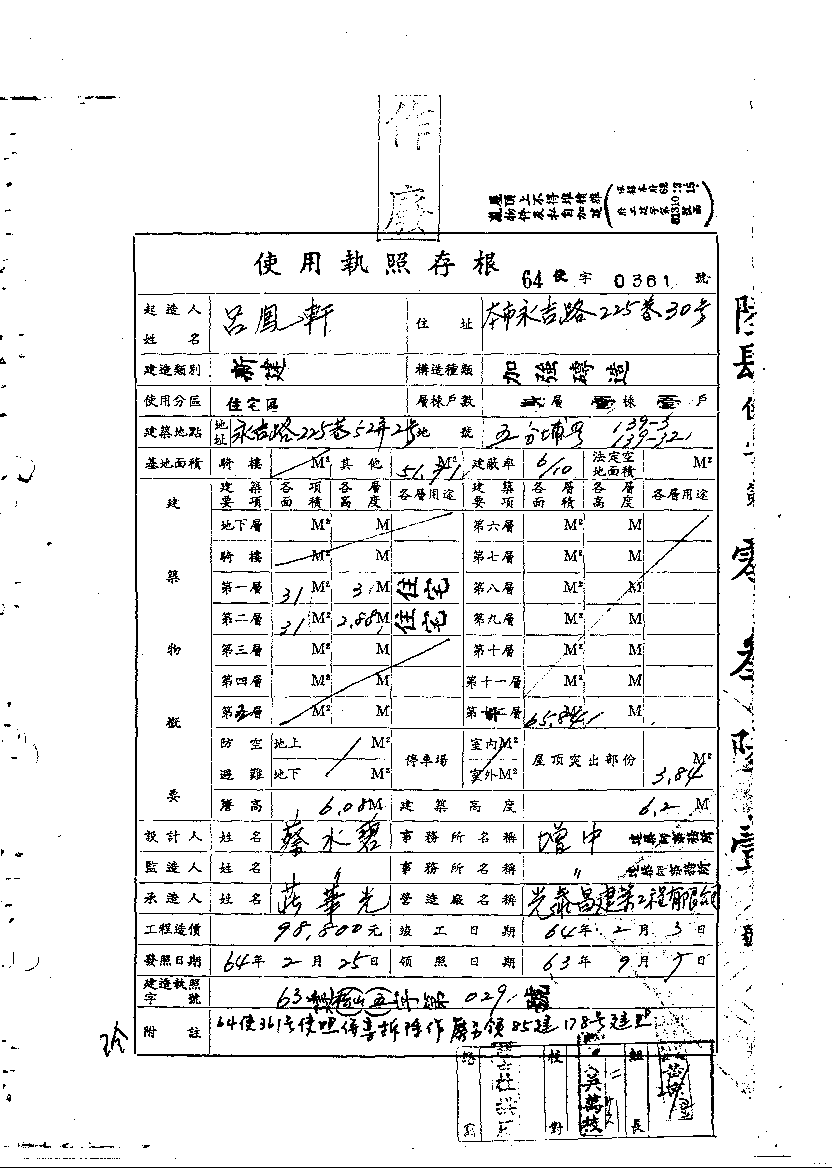 作
廢
屋頂上不得堆積雜
亂物件及私自加建
使用執照存根
64 使 字 0361 號
起造人姓名 呂鳳軒 住址 本市永吉路225巷30号
建造類別 新建 構造種類 加強磚造
使用分區 住宅區 層棟戶數 層 壹棟 壹戶
建築地點 地址 永吉路225巷52弄2号 地號 五分埔段 139-3 139-121
基地面積 騎樓 M² 其他 51.71 M² 建蔽率 6/10 法定空地面積 M²
建築物概要
建築要項 各項面積 各層高度 各層用途 建築要項 各層面積 各層高度 各層用途
地下層 M² M 第六層 M² M
騎樓 M² M 第七層 M² M
第一層 31 M² 3 M 住宅 第八層 M² M
第二層 31 M² 2.88 M 住宅 第九層 M² M
第三層 M² M 第十層 M² M
第四層 M² M 第十一層 M² M
第五層 M² M 層 65.84 M
防空避難 地上 M² 地下 M² 停車場 室內 M² 室外 M² 屋頂突出部份 3.84 M²
簷高 6.08 M 建築高度 6.2 M
設計人 姓名 蔡水碧 事務所名稱 增中 建築師事務所
監造人 姓名 〃 事務所名稱 〃 建築師事務所
承造人 姓名 莊華光 營造廠名稱 光泰昌建築工程有限公司
工程造價 98,800元 竣工日期 64年2月3日
發照日期 64年2月25日 領照日期 63年9月5日
建造執照字號 63 029
附註 64使361号使照係書拆除作廢另領85建178号建照
校對 吳萬枝 組長
陸肆使字第零叁陸壹號